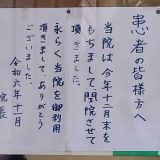 患者の皆様方へ
当院は今年十二月末を
もちまして、閉院させて
頂きました。
永らく当院を御利用
頂きまして、ありがとう
ございました。
令和六年十一月
院長